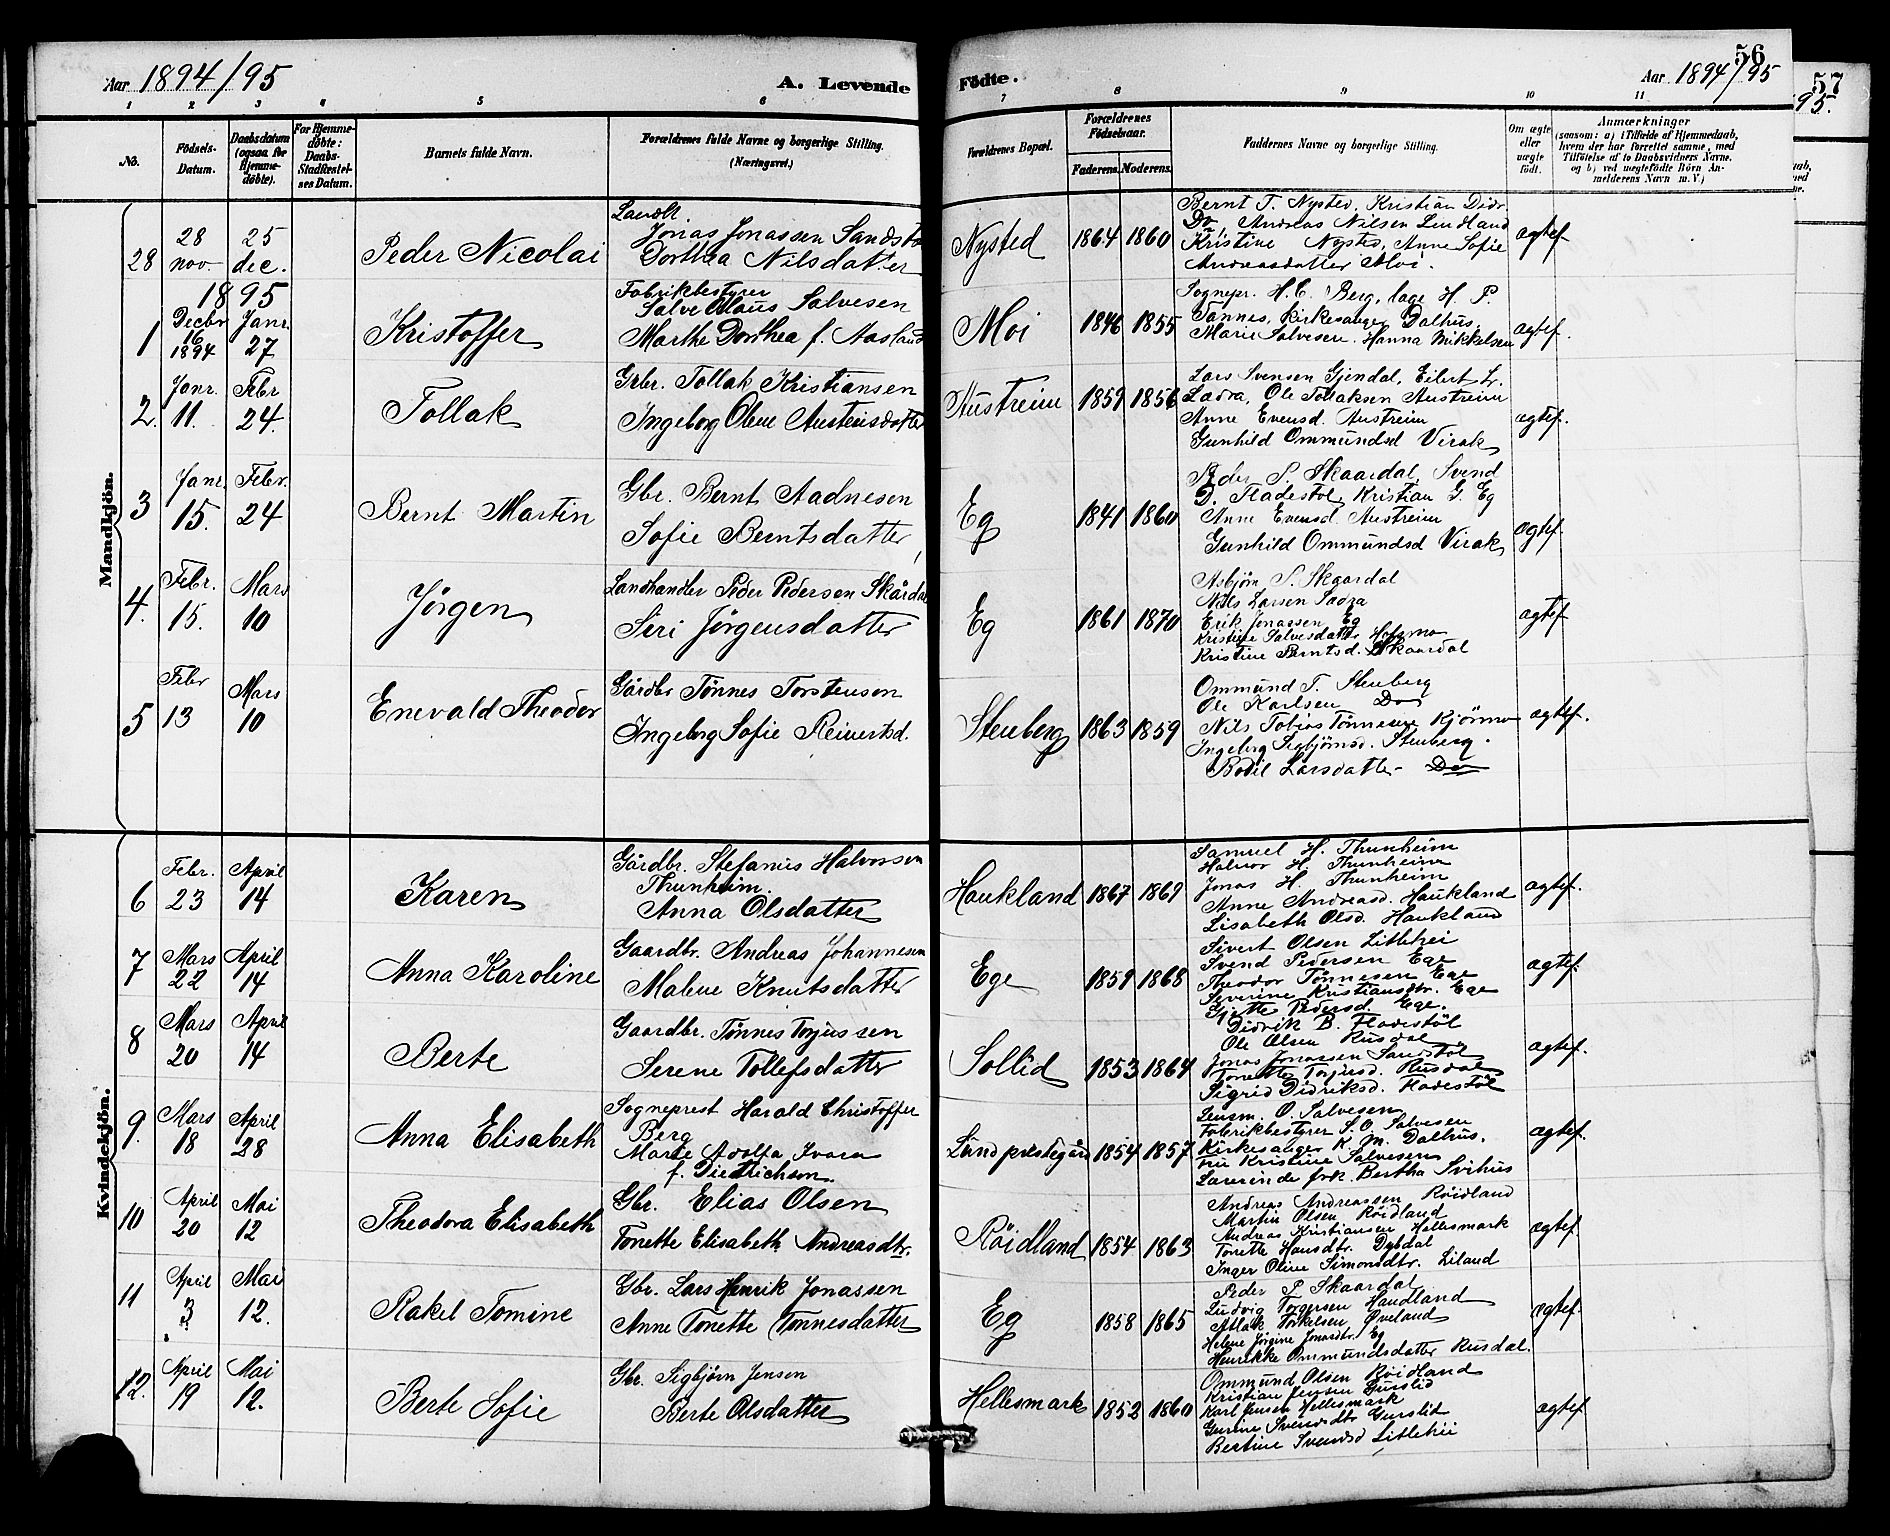 Aar 1894/95
A. Levende
Fødte.
Aar 1894/95
56
57
95.
1 2 3 4 5 6 7 8 9 10 11
No.
Fødsels-Datum.
Daabsdatum (ogsaa for Hjemmedøbte).
For Hjemmedøbte: Daabs-Stadfæstelses Datum.
Barnets fulde Navn.
Forældrenes fulde Navne og borgerlige Stilling. (Næringsvei.)
Forældrenes Bopæl.
Forældrenes Fødselsaar.
Faderens. Moderens.
Faddernes Navne og borgerlige Stilling.
Om ægte eller uægte født.
Anmærkninger
(saasom: a) i Tilfælde af Hjemmedaab, hvem der har forrettet samme, med Tilføielse af to Daabsvidners Navne, og b) ved uægtefødte Børn Anmelderens Navn m. V.)
Mandkjøn.
28
28 nov.
25 dec.
Peder Nicolai
Landh.
Jonas Jonassen Sandstøl
Dorthea Nilsdatter
Nysted
1864 1860
Bernt T. Nysted, Kristian Didr.
Do, Andreas Nilsen Lindland
Kristine Nysted, Anne Sofie
Andreasdatter Moi.
ægtef
1895
1
Decbr 16 1894
Janr. 27
Kristoffer
Fabrikbestyrer
Salve Olaus Salvesen
Marthe Dorthea f. Aasland
Moi
1846 1855
Sognepr. H. C. Berg, læge H. P.
Tannes, Kirkesanger Dalhus,
Marie Salvesen, Hanna Mikkelsen
ægtef.
2.
Janr. 11.
Febr 24.
Tollak
Grbr. Tollak Kristiansen
Ingeborg Olene Austensdatter
Austreim
1859 1856
Lars Svensen Gjendal, Eilert L.
Ladra, Ole Tollaksen Austreim
Anne Evensd. Austreim
Gunhild Ommundsd Virak
ægtef.
3
Janr. 15.
Febr. 24
Bernt Martin
Gbr. Bernt Aadnesen
Sofie Berntsdatter
Eg
1841 1860
Peder P. Skaardal, Svend
D. Fladestøl, Kristian G. Eg
Anne Evensd. Austreim
Gunhild Ommundsd Virak
ægtef.
4.
Febr. 15.
Mars 10
Jørgen
Landhandler Peder Pedersen Skårdal
Siri Jørgensdatter
Eg
1861 1870
Asbjørn P. Skaardal
Nils Larsen Ladra
Erik Jonassen Eg
Kristine Salvesdatter Hofsmo
Kristine Berntsd. Skaardal
ægtef
5
Febr 13
Mars 10
Enevald Theodor
Gårdbr Tønnes Torstenson
Ingeborg Sofie Reinertsd.
Stenberg
1863 1859
Ommund T. Stenberg
Ole Karlsen Do
Nils Tobias Tønnesen Kjørmo
Ingeborg Sigbjørnsd. Stenberg.
Bodil Larsdatter Do
ægtef.
Kvindekjøn.
6
Febr. 23
April 14
Karen
Gårdbr. Stefanus Halvorsen
Thunheim.
Anna Olsdatter
Haukland
1867 1869
Samuel H. Thunheim
Halvor H. Thunheim
Jonas H. Thunheim
Anne Andreasd. Haukland
Lisabeth Olsd. Haukland
ægtef.
7
Mars 22
April 14
Anna Karoline
Gaardbr. Andreas Johannesen
Malene Knutsdatter
Ege
1859 1868
Sivert Olsen Litlehei
Svend Pedersen Ege
Theodor Tønnesen Ege
Severine Kristiansdtr. Ege
Gjette Pedersd. Ege.
ægtef.
8
Mars 20
April 14
Berte
Gaardbr. Tønnes Torjussen
Serene Tollefsdatter
Sollid
1853 1864
Didrik B. Fladestøl
Ole Olsen Rusdal
Jonas Jonassen Sandstøl
Tonette Torjusd. Rusdal
Sigrid Didriksd. Fladestøl
ægtef.
9.
Mars 18
April 28
Anna Elisabeth
Sogneprest Harald Christoffer
Berg
Marie Adolfa Ivara
f. Dietrichson.
Lund prestegård
1854 1857
Lensm. O. Salvesen
Fabrikbestyrer S. O. Salvesen
Kirkesanger K. M. Dalhus.
Fru Kristine Salvesen
Lærerinde frk. Bertha Svihus
ægtef.
10
April 20
Mai 12
Theodora Elisabeth
Gbr. Elias Olsen
Tonette Elisabeth Andreasdtr.
Röidland
1854 1863
Andreas Andreassen Röidland
Martin Olsen Röidland
Andreas Kristiansen Hellesmark
Tonette Hansdtr. Dybdal
Inger Oline Simonsdtr. Liland
ægtef
11
April 3
Mai 12.
Rakel Tomine
Gbr. Lars Henrik Jonassen
Anne Tonette Tønnesdatter
Eg
1858 1865
Peder P. Skaardal
Ludvig Torgersen Haudland
Atlak Torkelsen Øveland
Helene Jørgine Jonasdtr. Eg
Henrikke Ommundsdatter Rusdal.
ægtef
12.
April 19
Mai 12.
Berte Sofie
Gbr. Sigbjørn Jensen
Berte Olsdatter
Hellesmark
1852 1860
Ommund Olsen Röidland
Kristian Jensen Gurslid
Karl Jensen Hellesmark
Gurine Svendsdtr Gurslid
Bertine Svendsd Litlehei
ægtef